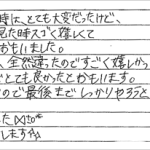 時は、とても大変だったけど、
見た時スゴく嬉しくて
おもいました。
、全然違ったのですごく嬉しかっ
とても良かったとおもいます。
ので最後までしっかりやろうと
た
します